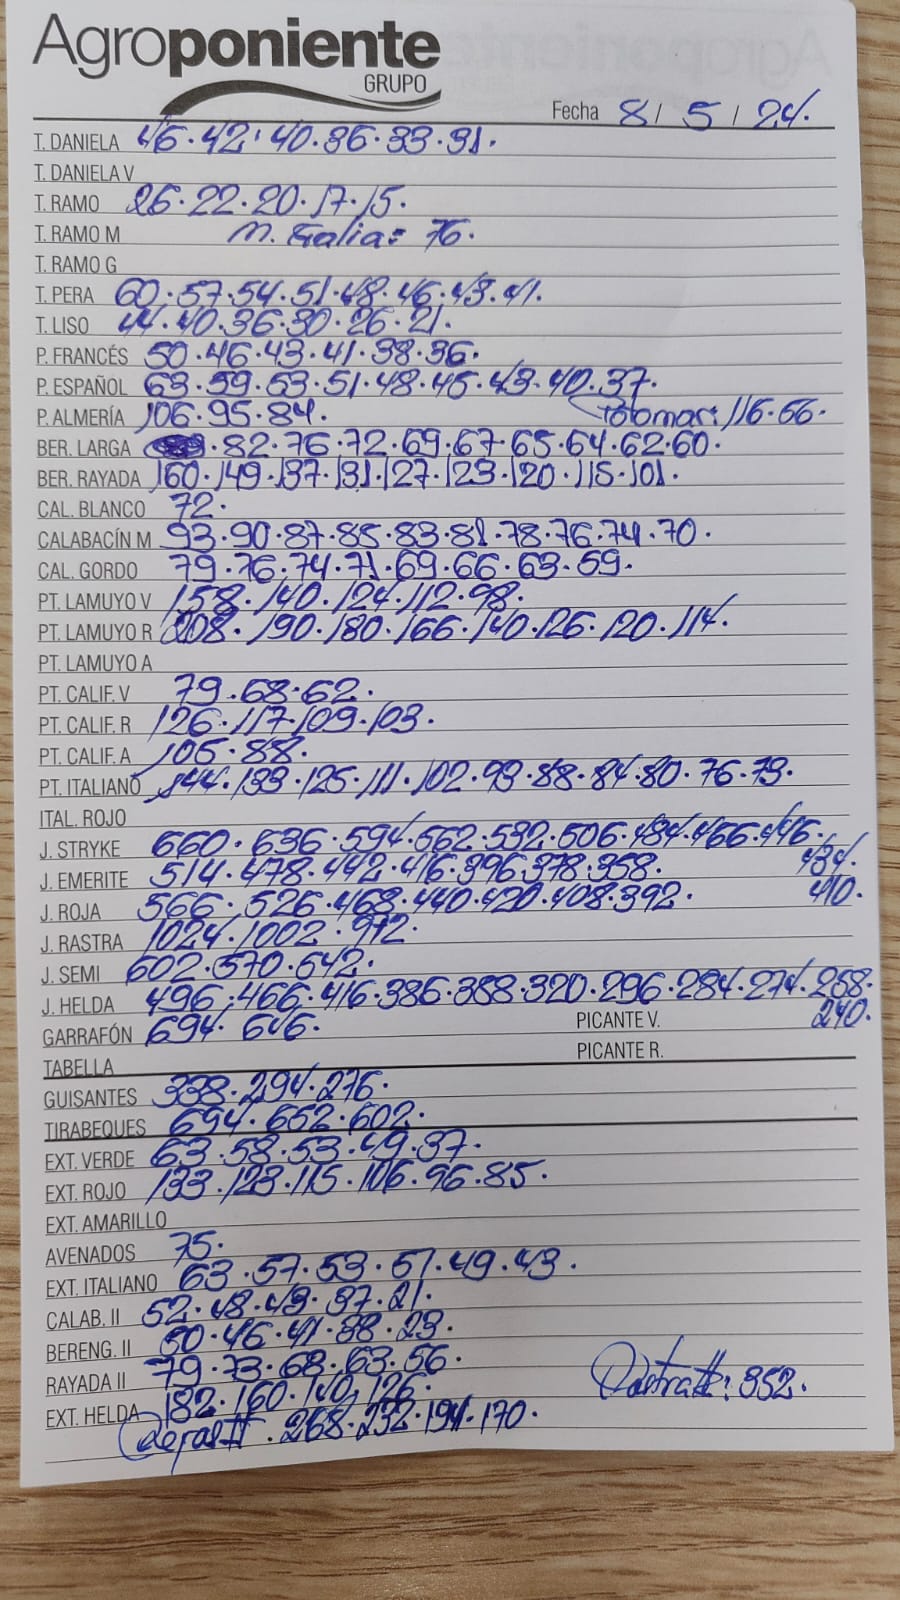 Agroponiente
GRUPO
Fecha 8 / 5 / 24.
T. DANIELA 46·42·40·36·33·31.
T. DANIELA V
T. RAMO 26·22·20·17·15.
T. RAMO M M. Galia= 76.
T. RAMO G
T. PERA 60·57·54·51·48·46·43·41.
T. LISO 44·40·36·30·26·21.
P. FRANCÉS 50·46·43·41·38·36.
P. ESPAÑOL 63·59·53·51·48·45·43·40·37.
P. ALMERÍA 106·95·84. 116·66.
BER. LARGA ·82·76·72·69·67·65·64·62·60.
BER. RAYADA 160·149·137·131·127·123·120·115·101.
CAL. BLANCO 72.
CALABACÍN M 93·90·87·85·83·81·78·76·74·70.
CAL. GORDO 79·76·74·71·69·66·63·59.
PT. LAMUYO V 158·140·124·112·98.
PT. LAMUYO R 208·190·180·166·140·126·120·114.
PT. LAMUYO A
PT. CALIF. V 79·68·62.
PT. CALIF. R 126·117·109·103.
PT. CALIF. A 105·88.
PT. ITALIANO 144·133·125·111·102·93·88·84·80·76·73.
ITAL. ROJO
J. STRYKE 660·636·594·562·532·506·484·466·446.
434.
J. EMERITE 514·478·442·416·396·378·358.
410.
J. ROJA 566·526·468·440·420·408·392.
J. RASTRA 1024·1002·972.
J. SEMI 602·570·542.
J. HELDA 496·466·416·386·358·320·296·284·274·258.
240.
GARRAFÓN 694·646. PICANTE V.
TABELLA PICANTE R.
GUISANTES 338·294·276.
TIRABEQUES 694·652·602.
EXT. VERDE 63·58·53·49·37.
EXT. ROJO 133·123·115·106·96·85.
EXT. AMARILLO
AVENADOS 75.
EXT. ITALIANO 63·57·53·51·49·43.
CALAB. II 52·48·43·37·21.
BERENG. II 50·46·41·38·23.
RAYADA II 79·73·68·63·56.
EXT. HELDA 182·160·140·126. Rastra II: 352.
·268·232·194·170.